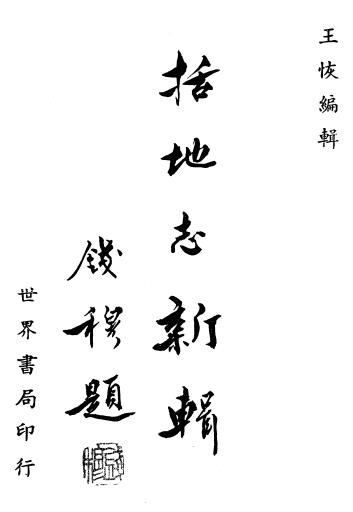 王恢編輯
括地志新輯
錢穆題
世界書局印行